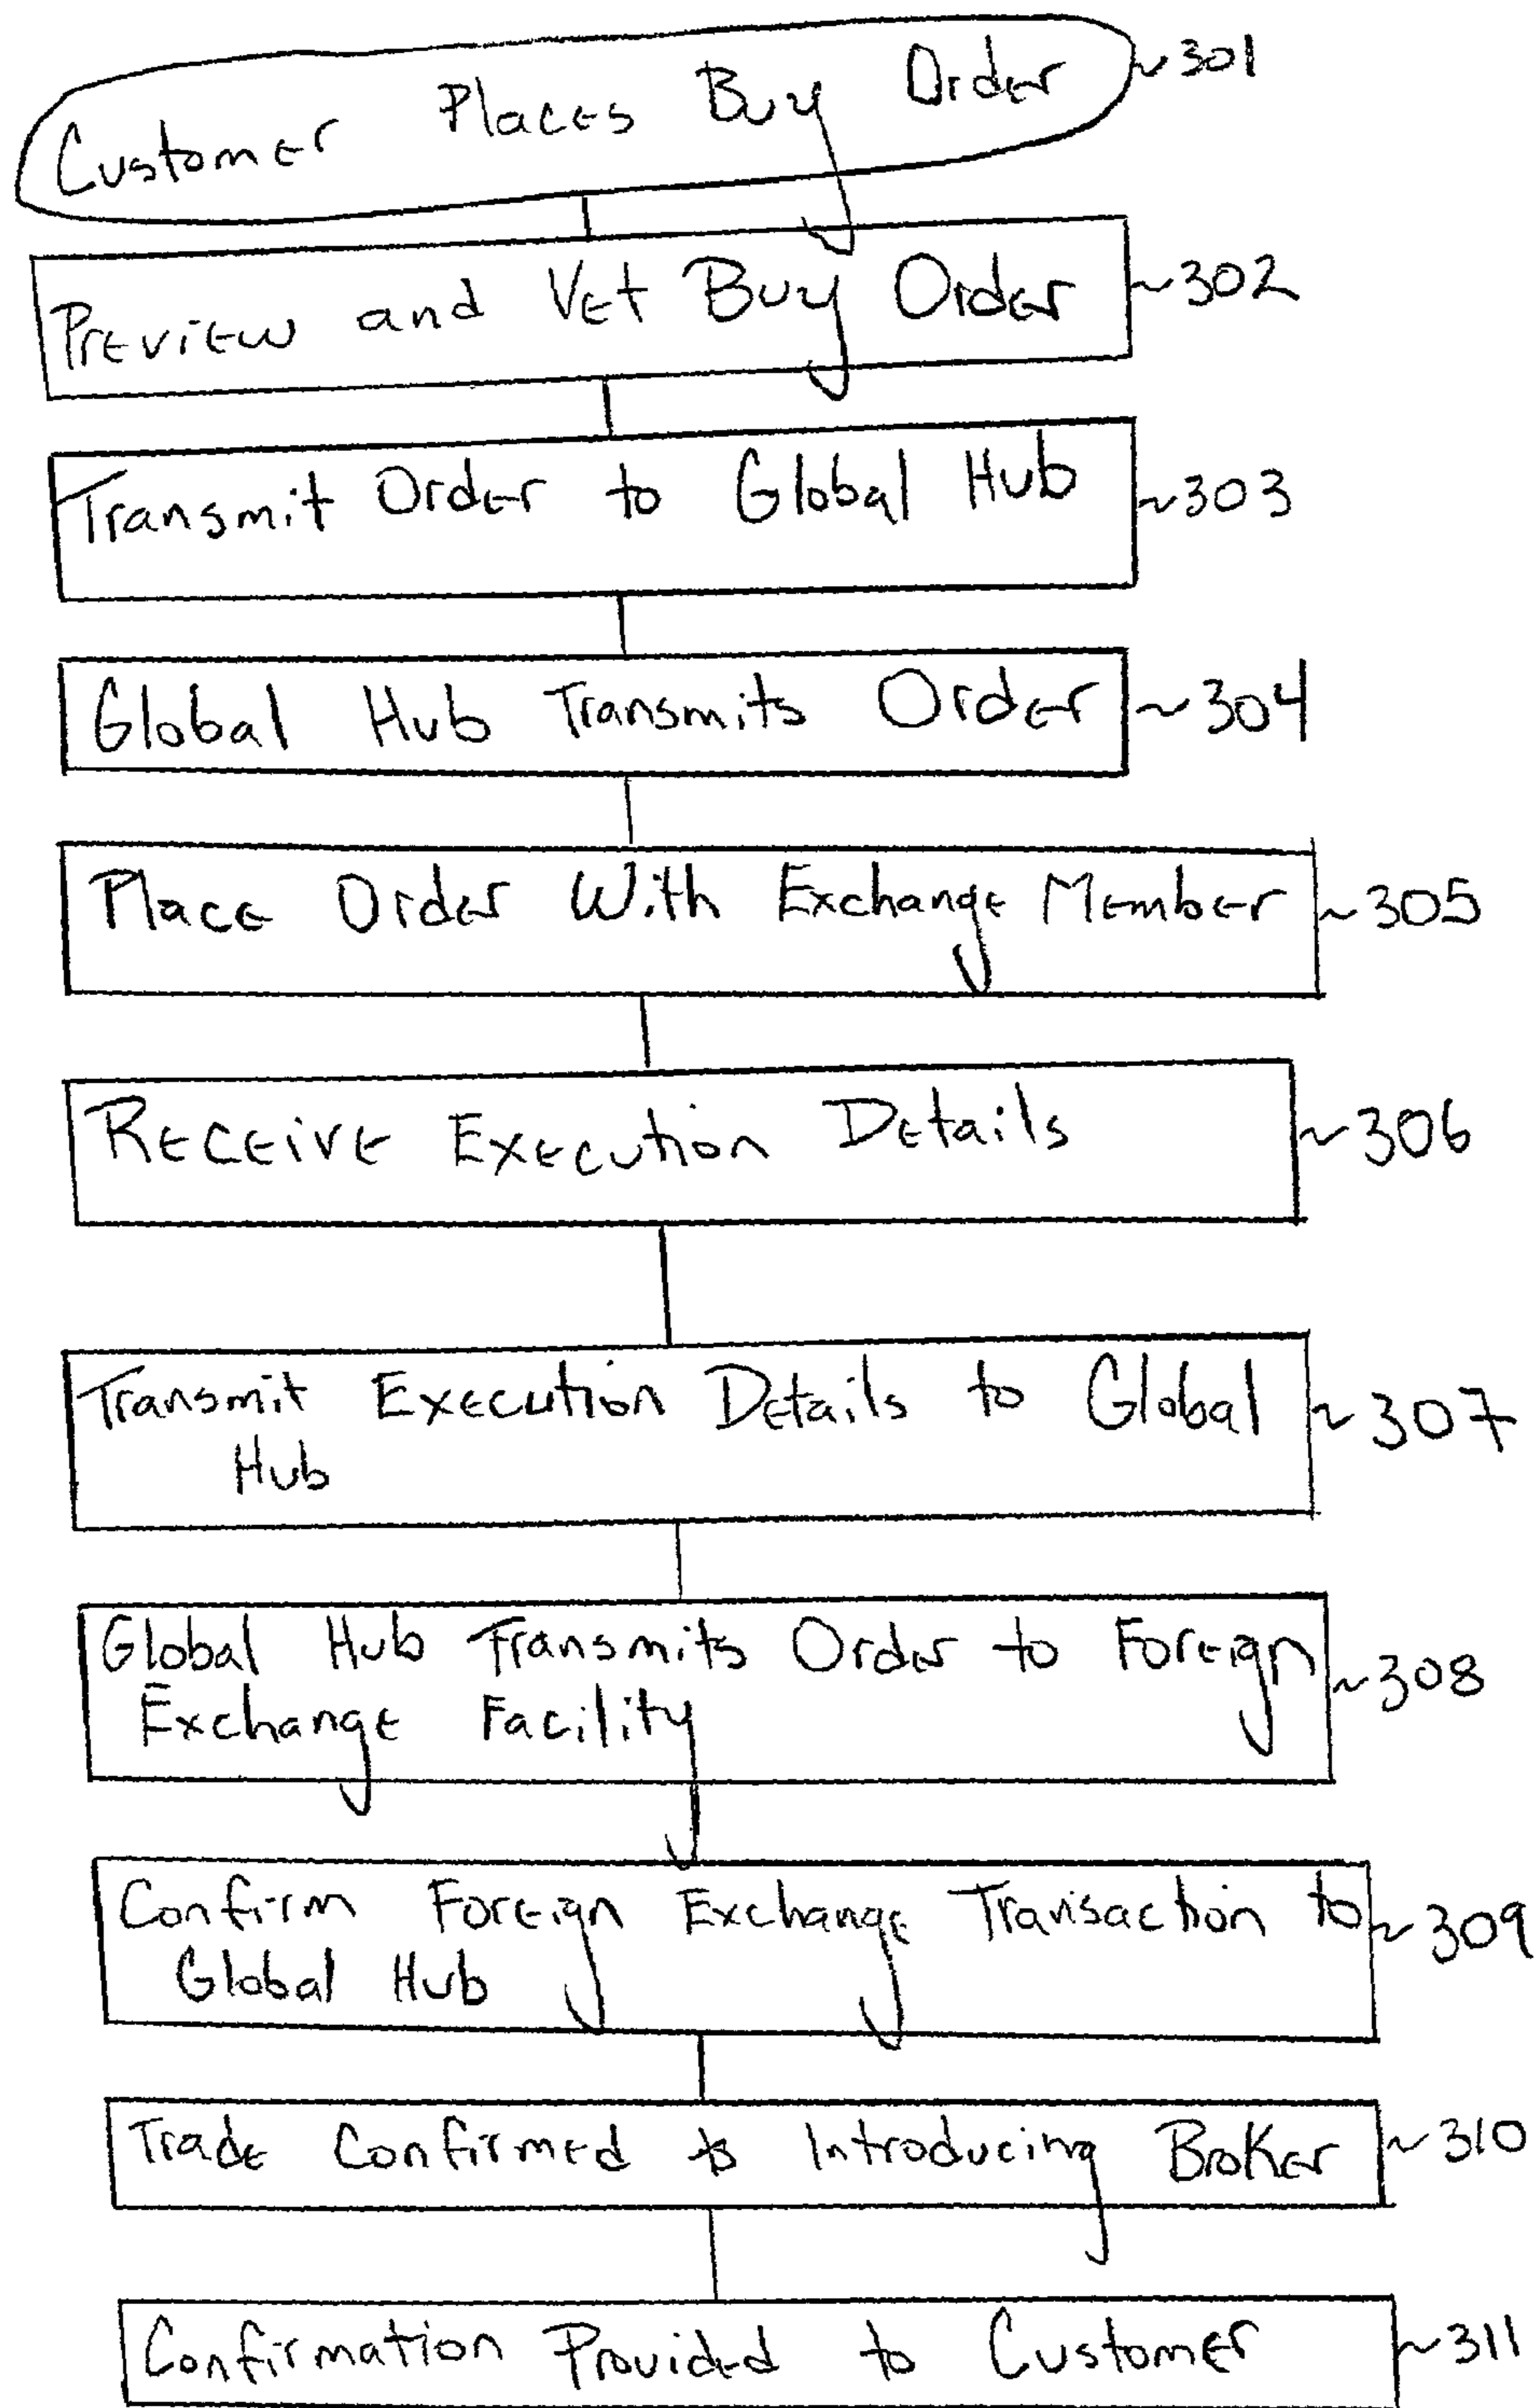 Customer Places Buy Order ~301
Preview and Vet Buy Order ~302
Transmit Order to Global Hub ~303
Global Hub Transmits Order ~304
Place Order With Exchange Member ~305
Receive Execution Details ~306
Transmit Execution Details to Global ~307
Hub
Global Hub Transmits Order to Foreign ~308
Exchange Facility
Confirm Foreign Exchange Transaction to ~309
Global Hub
Trade Confirmed to Introducing Broker ~310
Confirmation Provided to Customer ~311